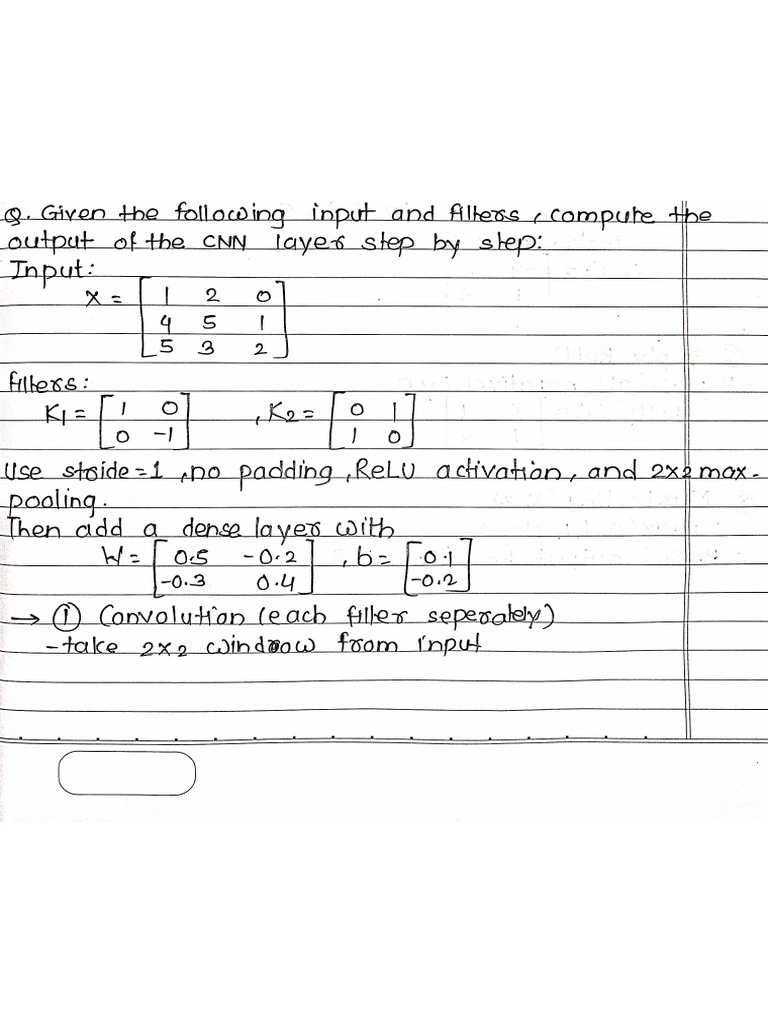 Q. Given the following input and filters, compute the
output of the CNN layer step by step:
Input:
x = [ 1 2 0
4 5 1
5 3 2 ]
filters:
K1 = [ 1 0 , K2 = [ 0 1
0 -1 ] 1 0 ]
Use stride=1, no padding, ReLU activation, and 2x2 max-
pooling.
Then add a dense layer with
W = [ 0.5 -0.2 , b = [ 0.1
-0.3 0.4 ] -0.2 ]
→ ① Convolution (each filter seperately)
- take 2x2 window from input